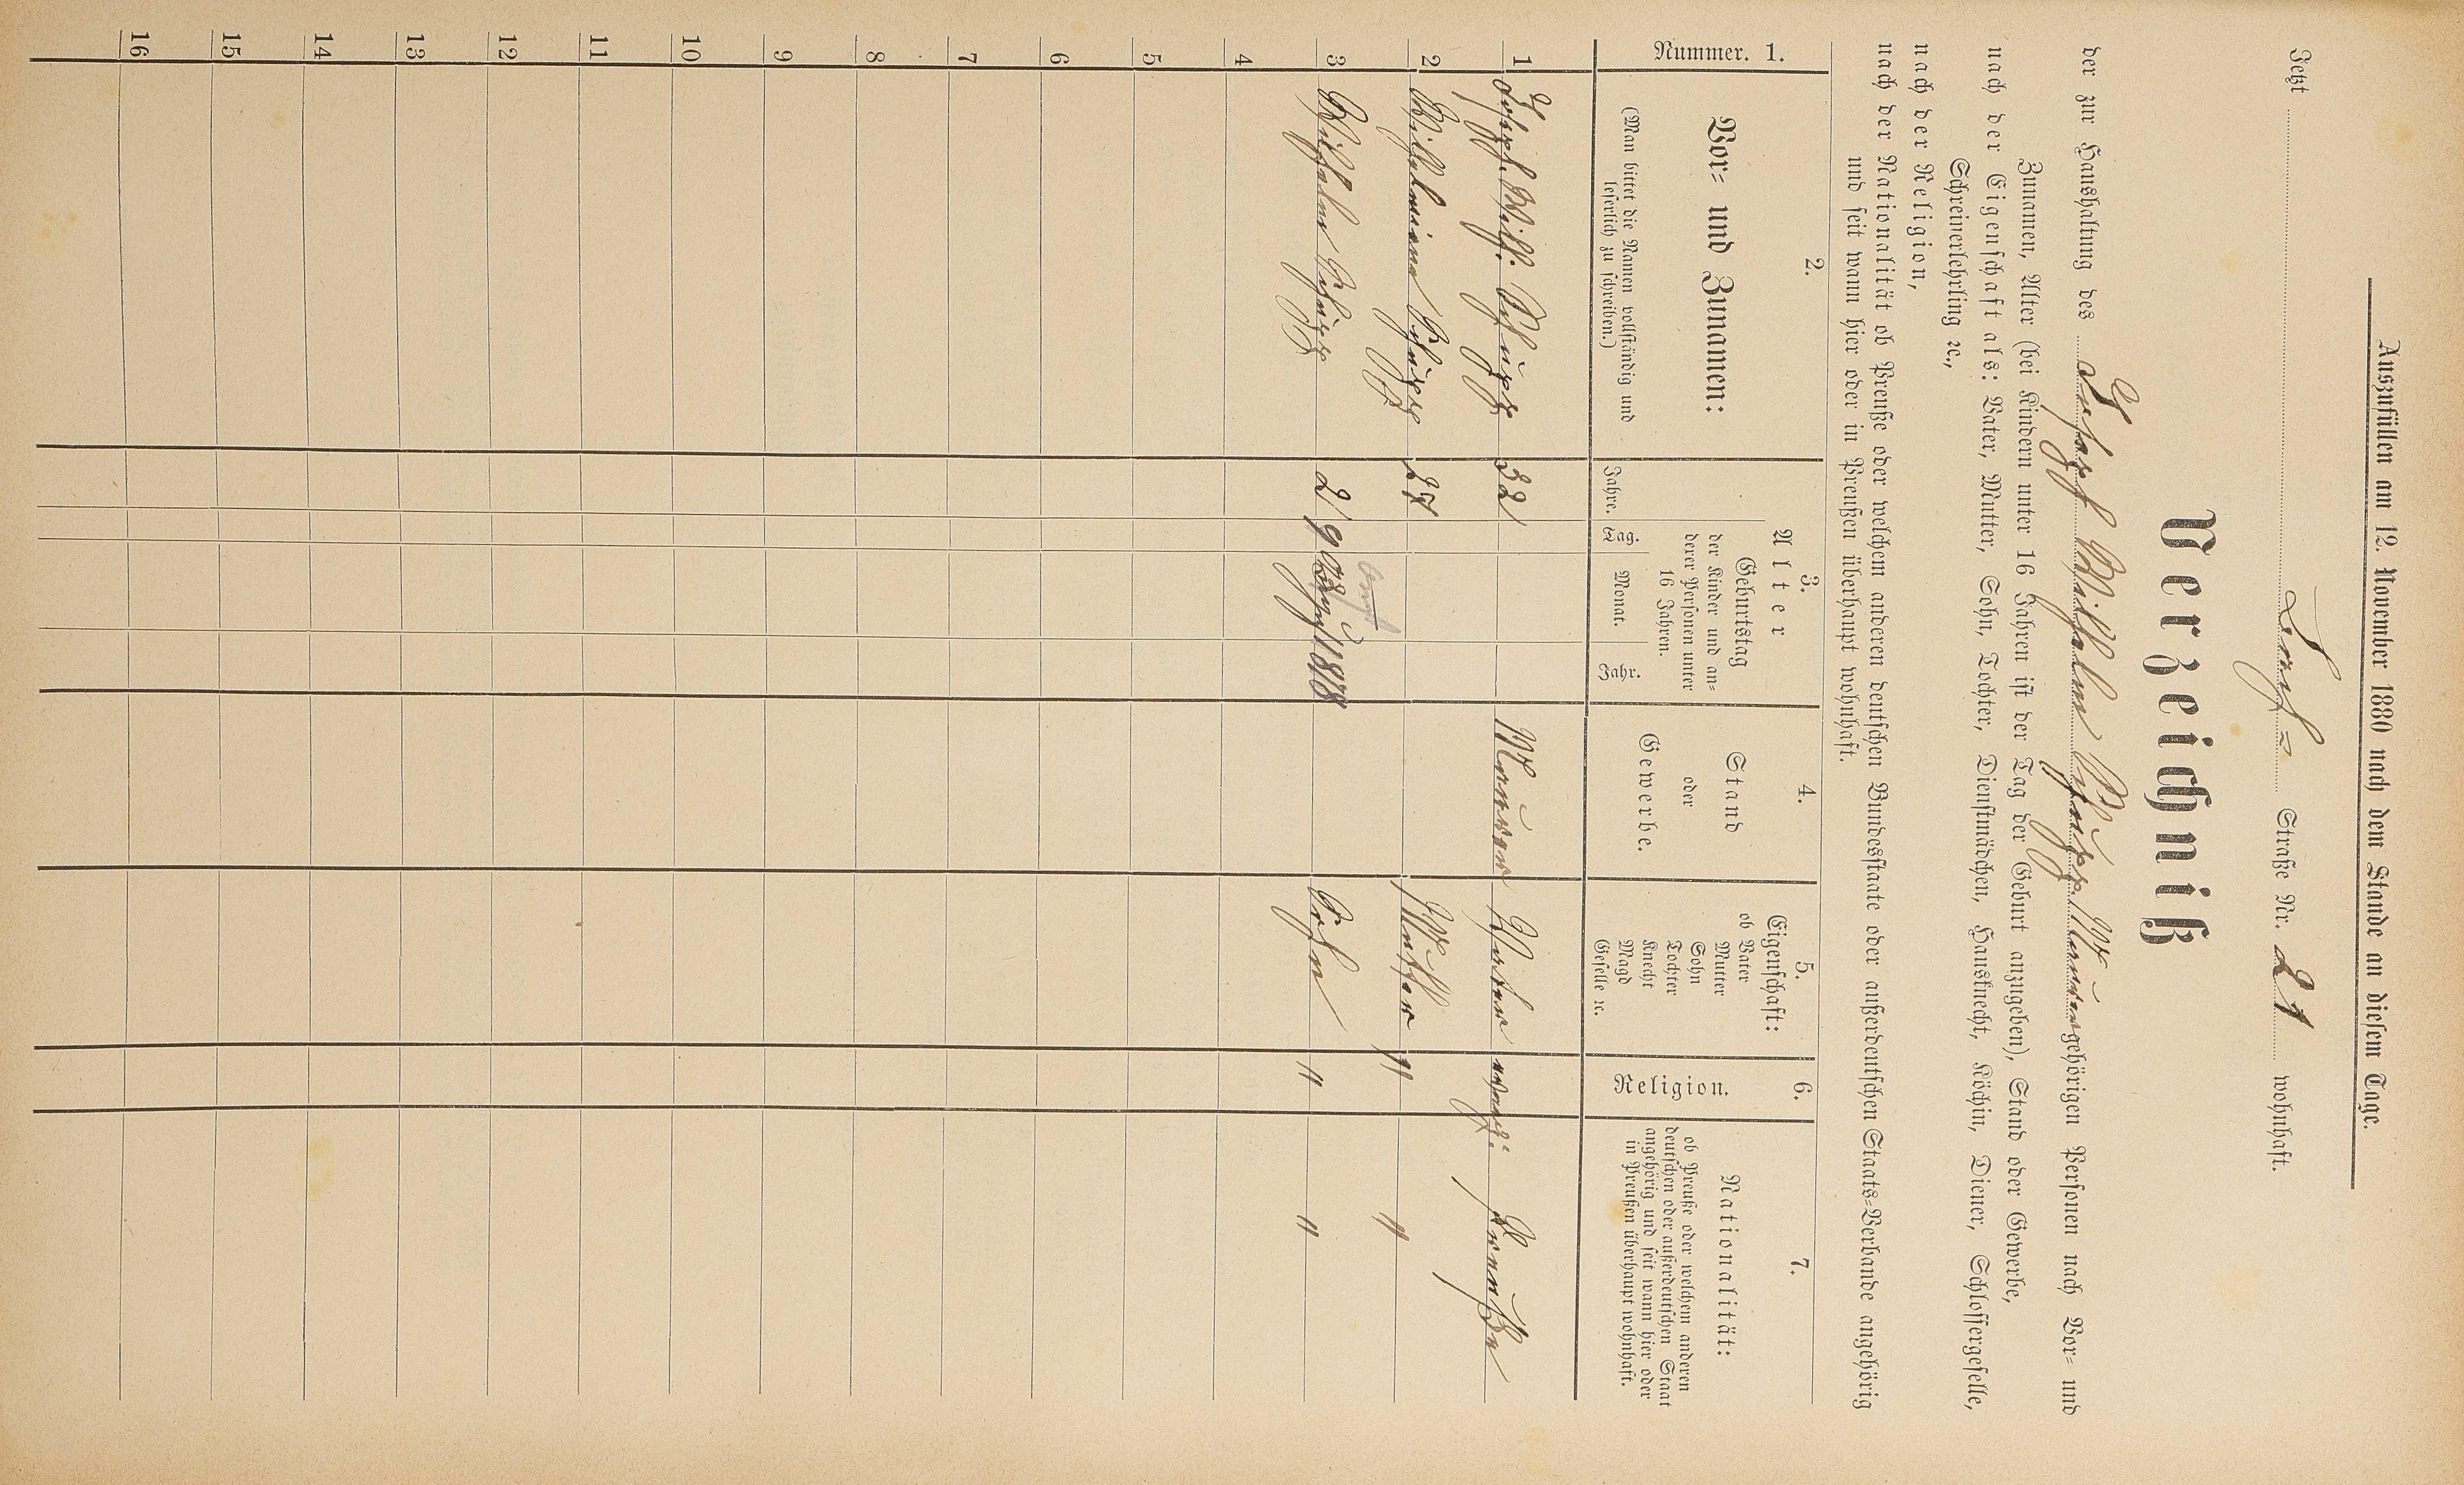 Auszufüllen am 12. November 1880 nach dem Stande an diesem Tage.
Jetzt Straße Nr. 21 wohnhaft.
Verzeichniß
der zur Haushaltung des Joseph Wilhelm Schüpp Maurer gehörigen Personen nach Vor- und
Zunamen, Alter (bei Kindern unter 16 Jahren ist der Tag der Geburt anzugeben), Stand oder Gewerbe,
nach der Eigenschaft als: Vater, Mutter, Sohn, Tochter, Dienstmädchen, Hausknecht, Köchin, Diener, Schlossergeselle,
Schreinerlehrling ꝛc.,
nach der Religion,
nach der Nationalität ob Preuße oder welchem anderen deutschen Bundesstaate oder außerdeutschen Staats-Verbande angehörig
und seit wann hier oder in Preußen überhaupt wohnhaft.
Nummer. 1.
2.
Vor- und Zunamen:
(Man bittet die Namen vollständig und
leserlich zu schreiben.)
3.
Alter
Jahre.
Geburtstag
der Kinder und an-
derer Personen unter
16 Jahren.
Tag. Monat. Jahr.
4.
Stand
oder
Gewerbe.
5.
Eigenschaft:
ob Vater
Mutter
Sohn
Tochter
Knecht
Magd
Geselle ꝛc.
6.
Religion.
7.
Nationalität:
ob Preuße oder welchem anderen
deutschen oder außerdeutschen Staat
angehörig und seit wann hier oder
in Preußen überhaupt wohnhaft.
1 Joseph Wilh. Schüpp 32 Maurer Vater evag. Preuße
2 Wilhelmine Schüpp 27 Mutter " "
3 Wilhelm Schüpp 2 9 1878 Sohn " "
4
5
6
7
8
9
10
11
12
13
14
15
16